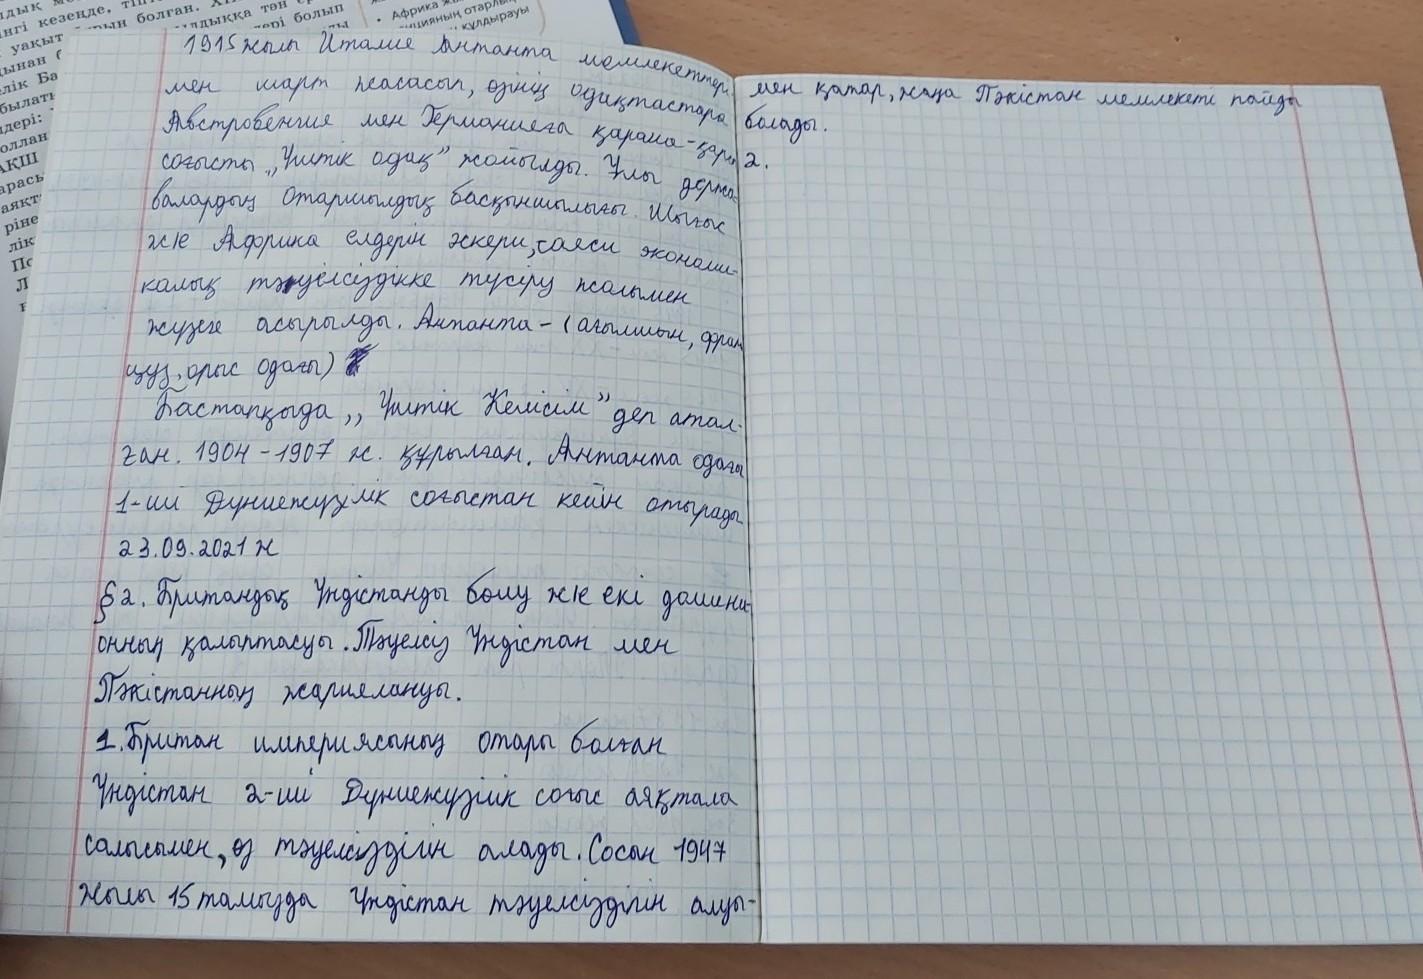 1915 жылы Италие Антанта мемлекеттер
мен шарт жасасып, өзінің одақтастара
Австровенгие мен Германиеға қарама-қарш
соғысты „Үштік одақ” жойылды. Ұлы держа-
валардың отаршылдық басқыншылығы. Шығыс
ж/е Африка елдерін әскери, саяси экономи-
калық тәуелсіздікке түсіру жолымен
жүзеге асырылды. Антанта - (ағылшын, фран
цуз, орыс одағы)
Бастапқыда ,, Үштік Келісім” деп атал-
ған. 1904 - 1907 ж. құрылған. Антанта одағы
1-ші Дүниежүзілік соғыстан кейін отырады
23.09.2021 ж
§ 2. Британдық Үндістанды бөлу ж/е екі домини-
онның қалыптасуы. Тәуелсіз Үндістан мен
Пәкістанның жариялануы.
1. Британ империясының отары болған
Үндістан 2-ші Дүниежүзілік соғыс аяқтала
салысымен, өз тәуелсіздігін алады. Сосын 1947
жылы 15 тамызда Үндістан тәуелсіздігін алуы-
мен қатар, жаңа Пәкістан мемлекеті пайда
болады.
2.